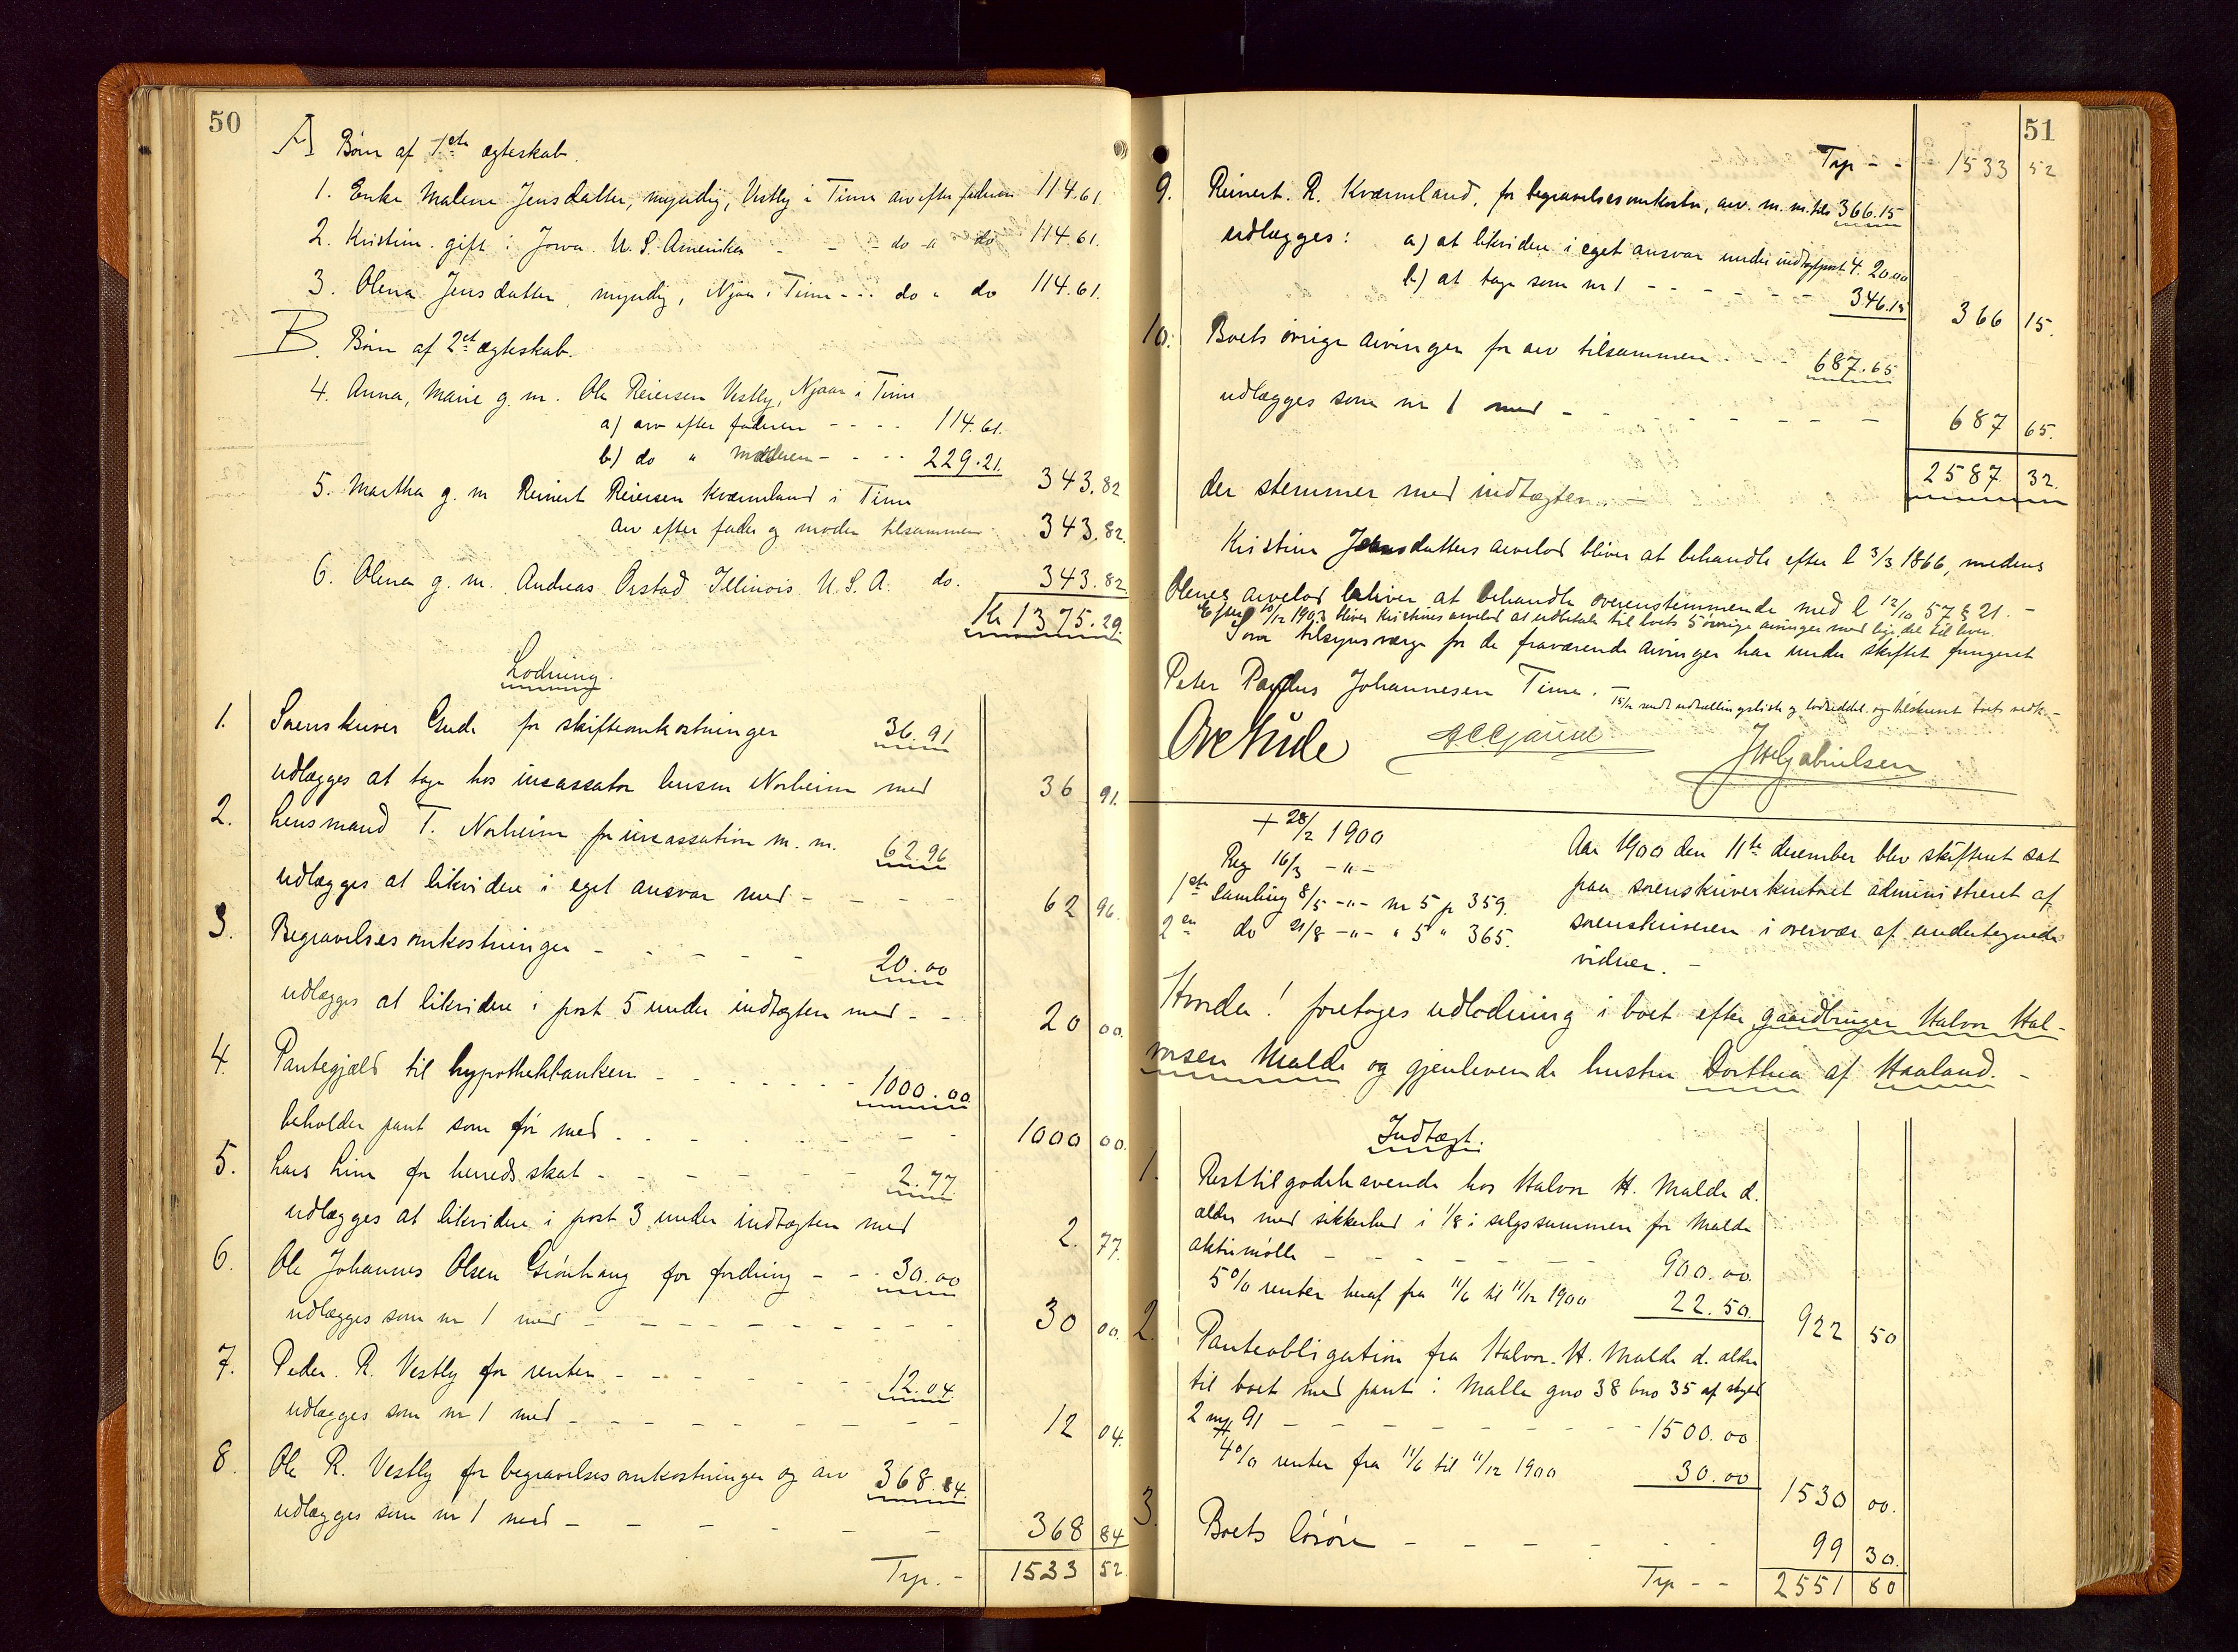 50
A Børn af 1ste egteskab.
1. Enke Malene Jensdatter, myndig, Vestly i Time arv efter faderen 114.61.
2. Kristine gift i Jowa U. S. Amerika - - - do - " do 114.61.
3. Olena Jensdatter, myndig, Njaa i Time - - - do " do 114.61.
B. Børn af 2et egteskab.
4. Anna, Marie g. m. Ole Reiersen Vestly, Njaa i Time
a) arv efter faderen - - - - 114.61.
b) do " moderen - - - - 229.21. 343.82
5. Martha g. m. Reinert Reiersen Kværneland i Time
arv efter fader og moder tilsammen 343.82.
6. Olena g. m. Andreas Orstad Illinois U. S. A. do. 343.82
Kr 1375.29.
Lodning.
1. Sorenskriver Gude for skifteomkostninger 36.91
udlægges at tage hos incassator lensm Norheim med 36 91.
2. Lensmand T. Norheim for incassation m. m. 62.96
udlægges at likvidere i eget ansvar med - - - - 62 96.
3. Begravelsesomkostninger - - - - - 20.00
udlægges at likvidere i post 5 under indtægten med - - 20 00.
4. Pantegjæld til hypothekbanken - - - - - - 1000.00
beholder pant som før med - - - - - - 1000 00.
5. Lars Lime for herredsskat - - - - - 2.77
udlægges at likvidere i post 3 under indtægten med 2. 77.
6. Ole Johannes Olsen Grønhaug for fordring - - - 30.00
udlægges som nr 1 med - - - - - - - - - 30 00.
7. Peder. R. Vestly for renter - - - - - - 12.04
udlægges som nr 1 med - - - - - - - - 12 04.
8. Ole R. Vestly for begravelsesomkostninger og arv 368.84.
udlægges som nr 1 med - - - - - - 368 84
Trp. - 1533 52
51
Trp - - 1533 52
9. Reinert. R. Kværneland, for begravelsesomkostn, arv. m. m. tils 366.15
udlægges: a) at likvidere i eget ansvar under indtægtpost 4. 20.00
b) at tage som nr 1 - - - - - - 346.15 366 15.
10. Boets øvrige arvinger for arv tilsammen - - - 687.65
udlægges som nr 1 med - - - - - - - - 687 65.
der stemmer med indtægten. - 2587 32.
Kristine Jensdatters arvelod bliver at behandle efter l 3/3 1866, medens
Olenes arvelod bliver at behandle overensstemmende med l 12/10 57 § 21. -
Efter 10/12 1903 bliver Kristines arvelod at udbetale til boets 5 øvrige arvinger med lige del til hver.
Som tilsynsværge for de fraværende arvinger har under skiftet fungeret
Peter Paulus Johannesen Time. -
15/12 sendt udtællingsliste og lodseddel og tilskrevet boets vedk. -
Ove Gude
J W Gabrielsen
+ 28/2 1900
Reg 16/3 - " -
1ste Samling 8/5 - " - nr 5 p 359.
2en do 21/8 - " - " 5 " 365.
Aar 1900 den 11te december blev skifteret sat
paa sorenskriverkontoret administreret af
sorenskriveren i overvær af undertegnede
vidner. -
Hvorda! foretoges udlodning i boet efter gaardbruger Halvor Hal-
vorsen Malde og gjenlevende hustru Dorthea af Haaland. -
Indtægt.
1. Resttilgodehavende hos Halvor H. Malde d.
ældre med sikkerhed i 1/8 i salgssummen for Malde
aktiemølle - - - - - - - 900.00.
5% renter heraf fra 11/6 til 11/12 1900 22.50. 922 50
2. Panteobligation fra Halvor. H. Malde d. ældre
til boet med pant i Malle gno 38 bno 35 af skyld
2 mk 91 - - - - - - - 1500.00
4% renter fra 11/6 til 11/12 1900 30.00 1530 00.
3. Boets løsøre - - - - - - 99 30.
Trp - - 2551 80